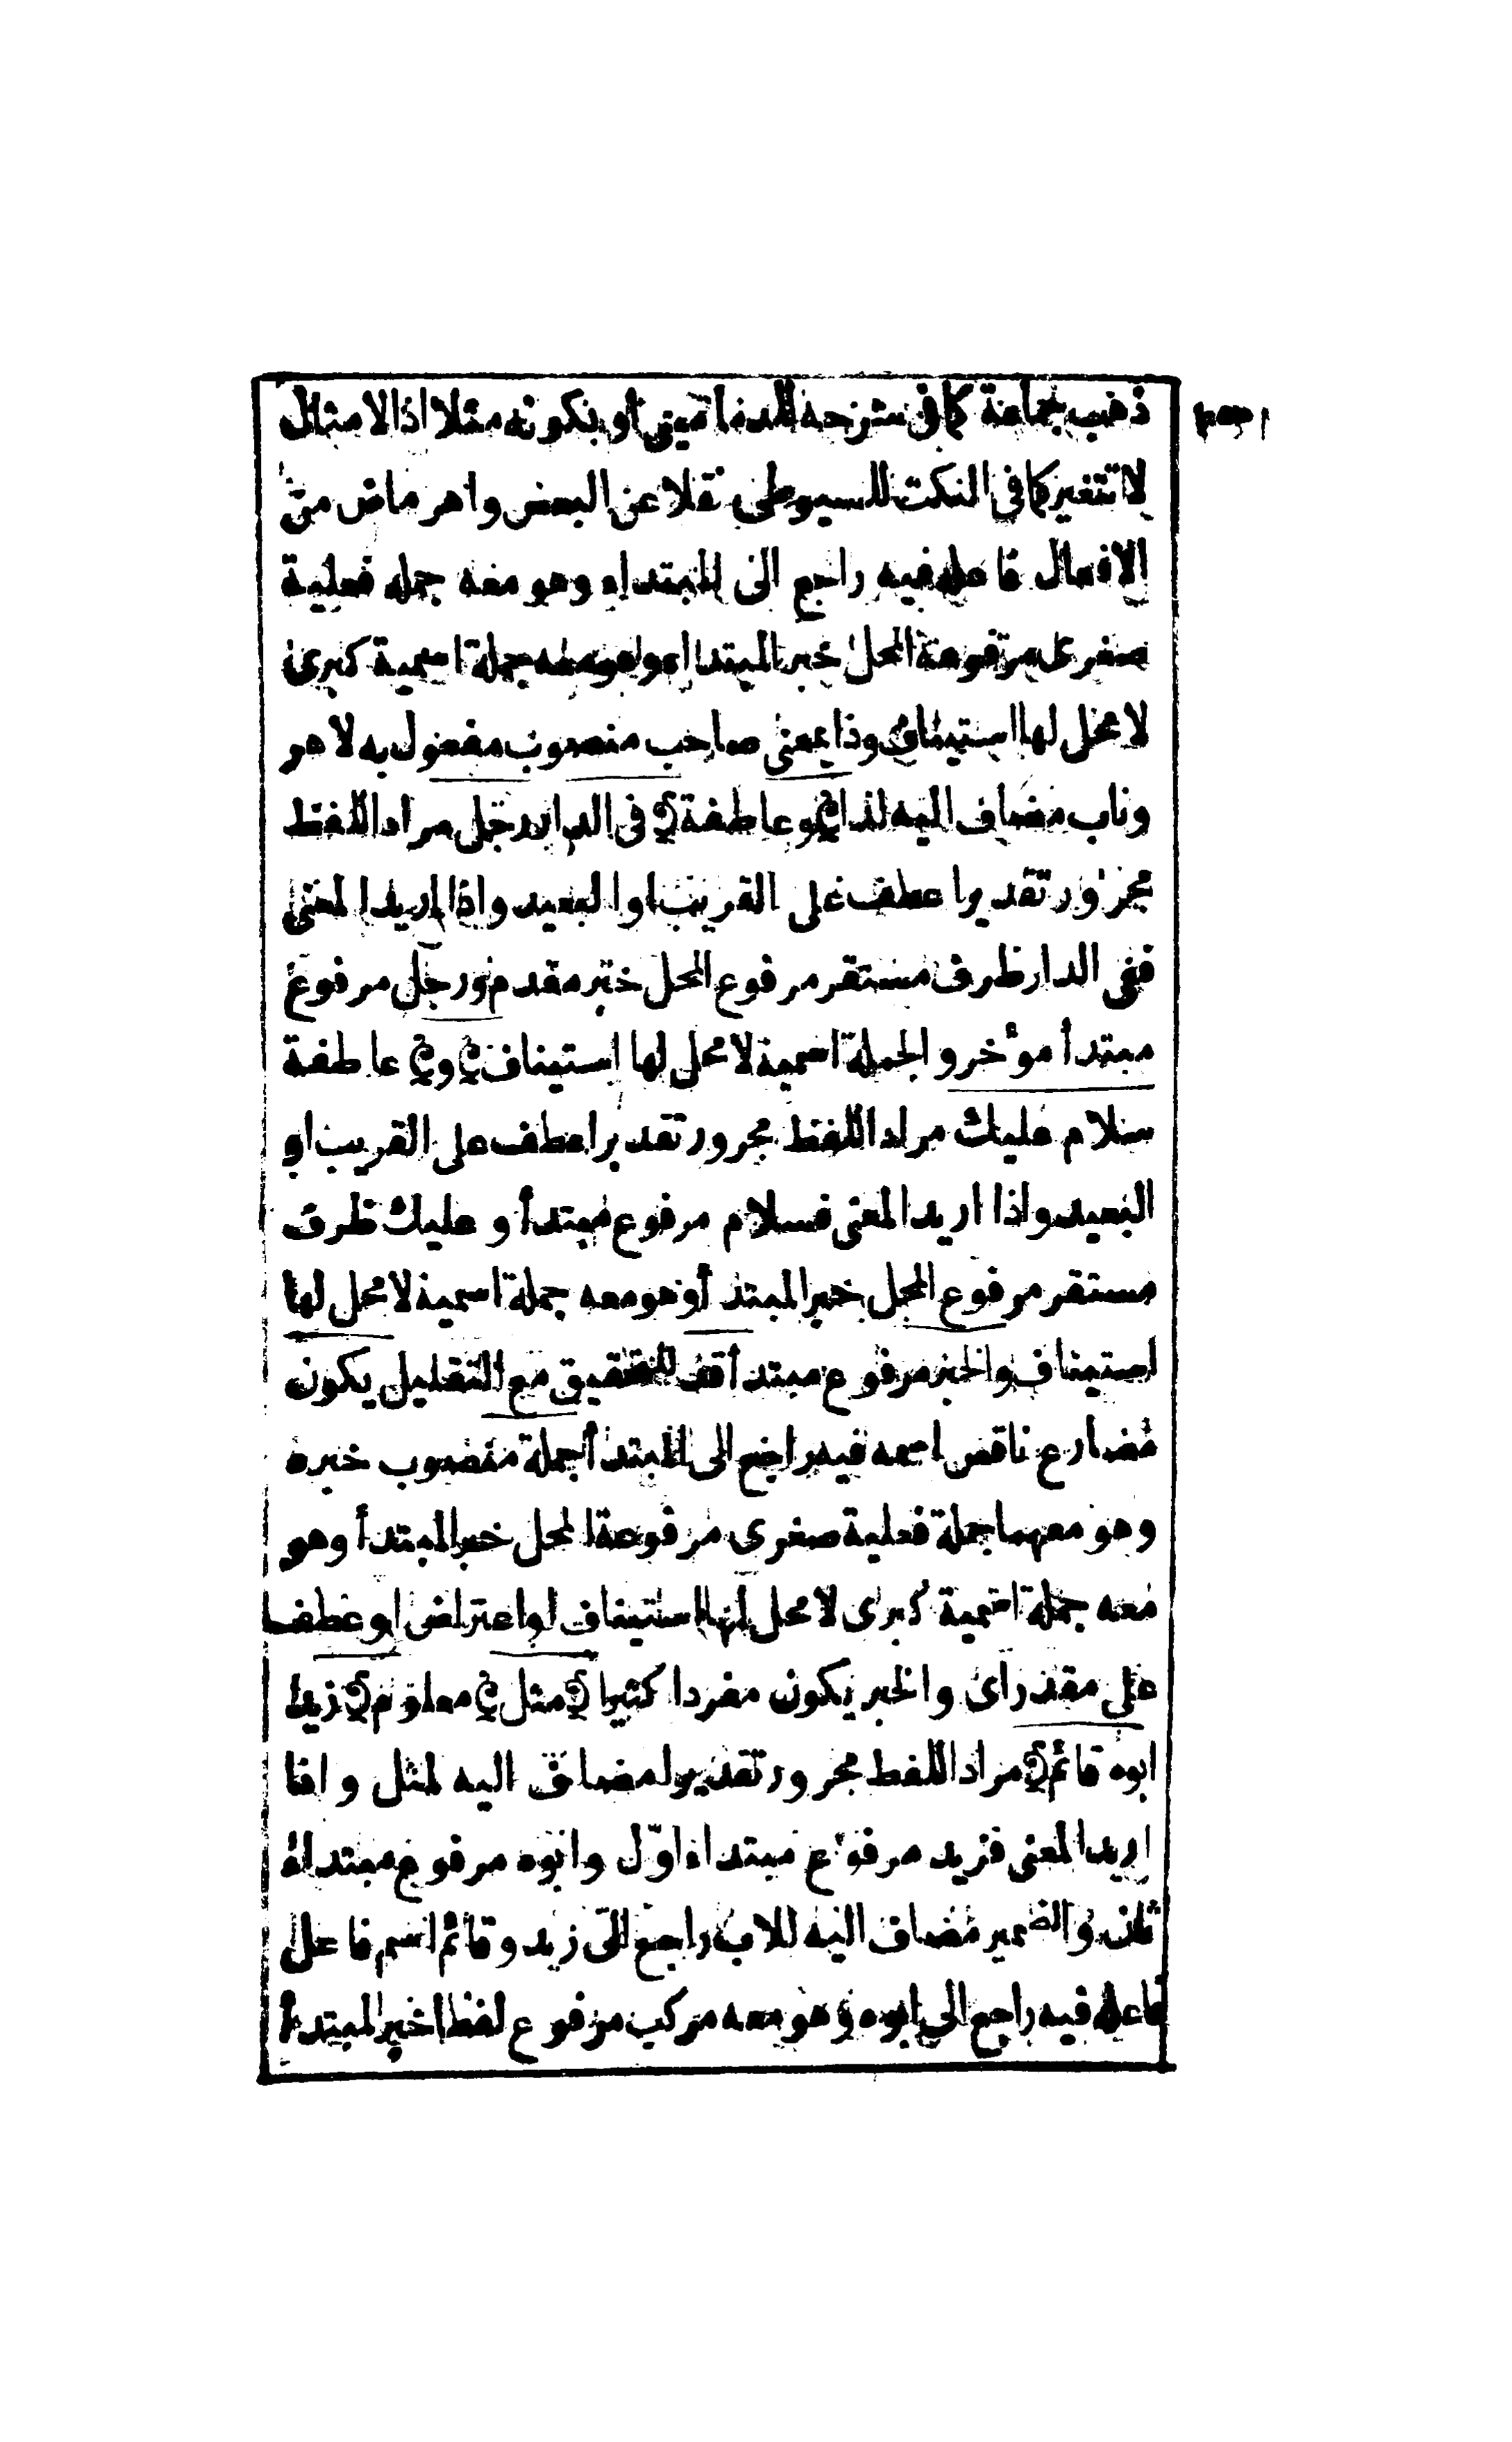 ذهب جماعة كما فى شرحه للدماميني أو بكونه مثلا اذ الامثال
لا تتغير كما فى النكت للسيوطى نقلا عن البعض واهر ماض من
الافعال فاعله فيه راجع الى المبتداء وهو معه جملة فعلية
صغرى مرفوعة المحل خبر المبتداء وهو معه جملة اسمية كبرى
لا محل لها استيناف وذا بمعنى صاحب منصوب مفعول به لاهر
وناب مضاف اليه لذا و عاطفة فى الدار رجل مراد اللفظ
مجرور تقديرا عطف على القريب او البعيد واذا اريد المعنى
ففى الدار ظرف مستقر مرفوع المحل خبر مقدم ورجل مرفوع
مبتدأ مؤخر والجملة اسمية لا محل لها استيناف و عاطفة
سلام عليك مراد اللفظ مجرور تقديرا عطف على القريب او
البعيد واذا اريد المعنى فسلام مرفوع مبتدأ و عليك ظرف
مستقر مرفوع المحل خبر المبتدأ وهو معه جملة اسمية لا محل لها
استيناف والخبر مرفوع مبتدأ قد للتحقيق مع التقليل يكون
مضارع ناقص اسمه فيه راجع الى المبتدأ جملة منصوب خبره
وهو معهما جملة فعلية صغرى مرفوعة المحل خبر المبتدأ وهو
معه جملة اسمية كبرى لا محل لها استيناف او اعتراض او عطف
على مقدر اى والخبر يكون مفردا كثيرا مثل معلوم زيد
ابوه قائم مراد اللفظ مجرور تقديرا مضاف اليه لمثل واذا
اريد المعنى فزيد مرفوع مبتداء اوّل وابوه مرفوع مبتداء
ثان والضمير مضاف اليه للاب راجع الى زيد وقائم اسم فاعل
فاعله فيه راجع الى ابوه وهو معه مركب مرفوع لفظا خبر المبتدأ